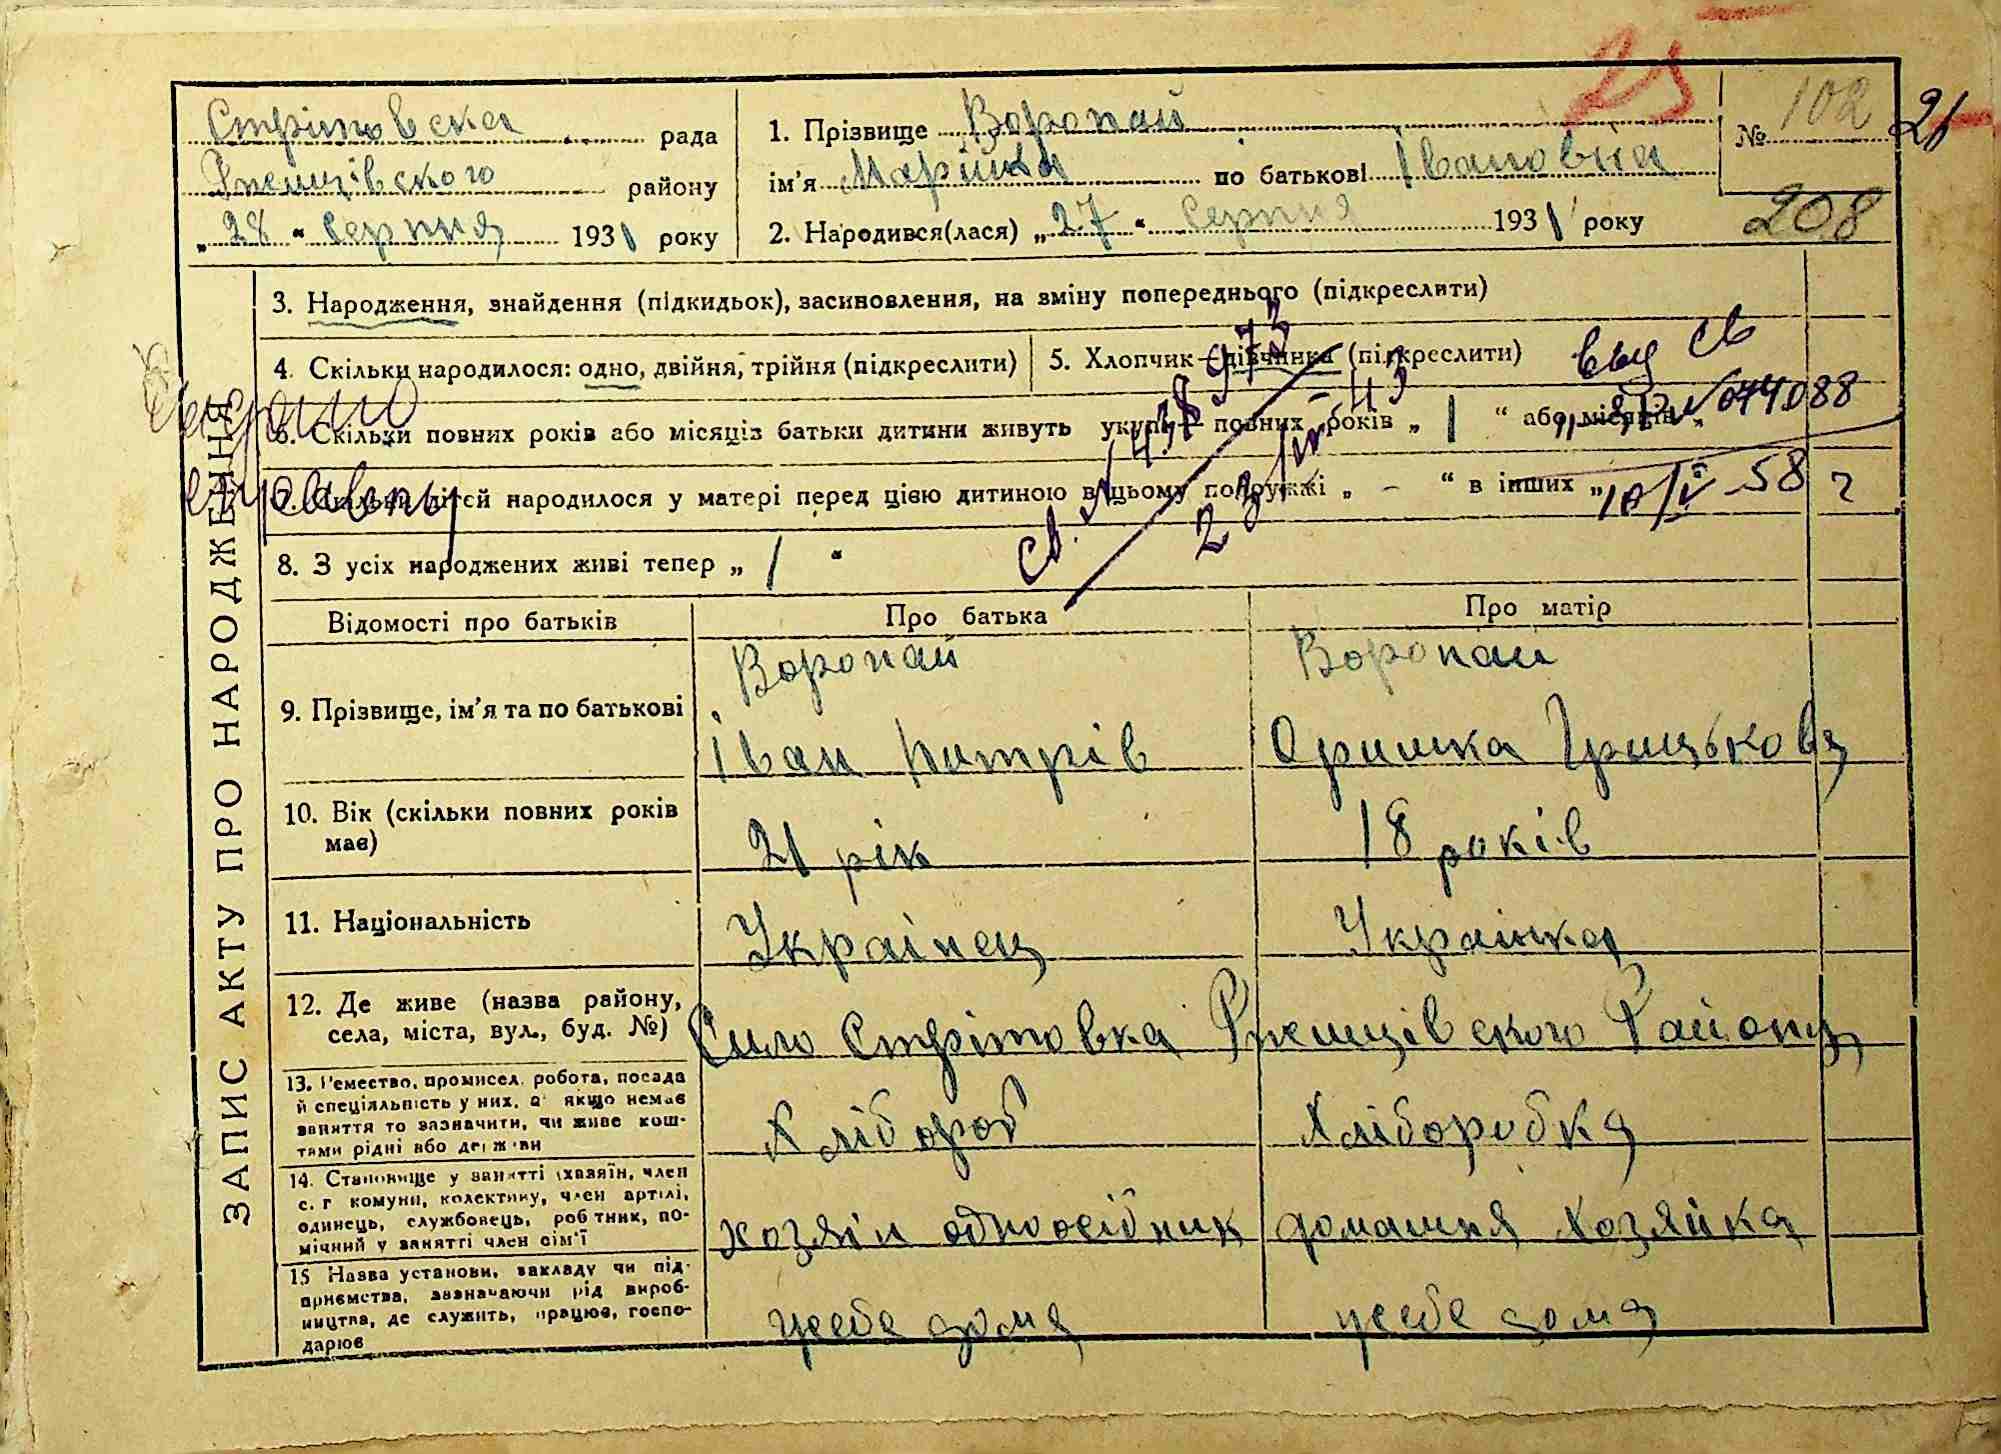 25
Стрітовска рада
Ржищівського району
„28“ Серпня 1931 року
1. Прізвище Воропай
ім'я Марійка по батькові Івановна
2. Народився(лася) „27“ Серпня 1931 року
№ 102
21
208
ЗАПИС АКТУ ПРО НАРОДЖЕННЯ
3. Народження, знайдення (підкидьок), засиновлення, на зміну попереднього (підкреслити)
4. Скільки народилося: одно, двійня, трійня (підкреслити)
5. Хлопчик—дівчинка (підкреслити)
6. Скільки повних років або місяців батьки дитини живуть укупі— повних років „1“ або місяців „
7. Скільки дітей народилося у матері перед цією дитиною в цьому подружжі „ – “ в інших „
8. З усіх народжених живі тепер „1“
выд св
N 074088
10/V-58 г
справку
Відомості про батьків
Про батька
Про матір
9. Прізвище, ім'я та по батькові
Воропай
Іван Питрів
Воропай
Оришка Грицькова
10. Вік (скільки повних років має)
21 рік
18 років
11. Національність
Українец
Українка
12. Де живе (назва району, села, міста, вул., буд. №)
Сило Стрітовка Ржещівского Району
13. Ремество, промисел, робота, посада
й спеціяльність у них, а якщо немає
заняття то зазначити, чи живе кош-
тами рідні або держави
Хлібороб
Хліборобка
14. Становище у занятті (хазяїн, член
с. г комуни, колективу, член артілі,
одинець, службовець, робітник, по-
мічний у занятті член сім'ї
хозяін одноосібник
домашня хозяйка
15 Назва установи, закладу чи під-
приємства, зазначаючи рід вироб-
ництва, де служить, працює, госпо-
дарює
усебе дома
усебе дома